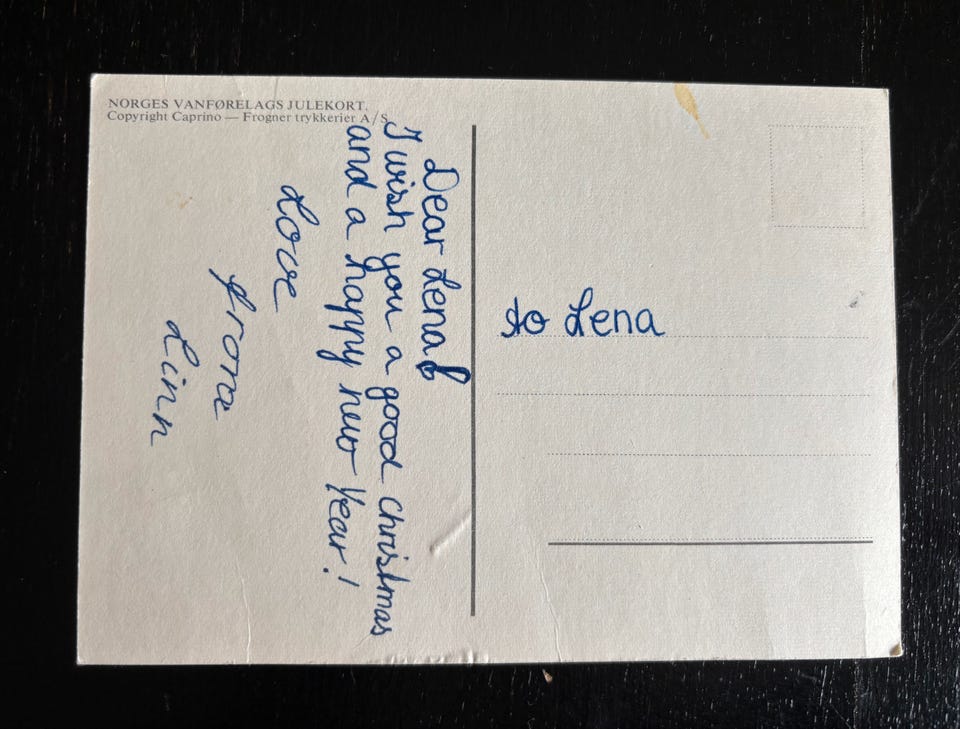 NORGES VANFØRELAGS JULEKORT.
Copyright Caprino — Frogner trykkerier A/S
Dear Lena!
I wish you a good christmas
and a happy new Year!
Love
from
Linn
to Lena